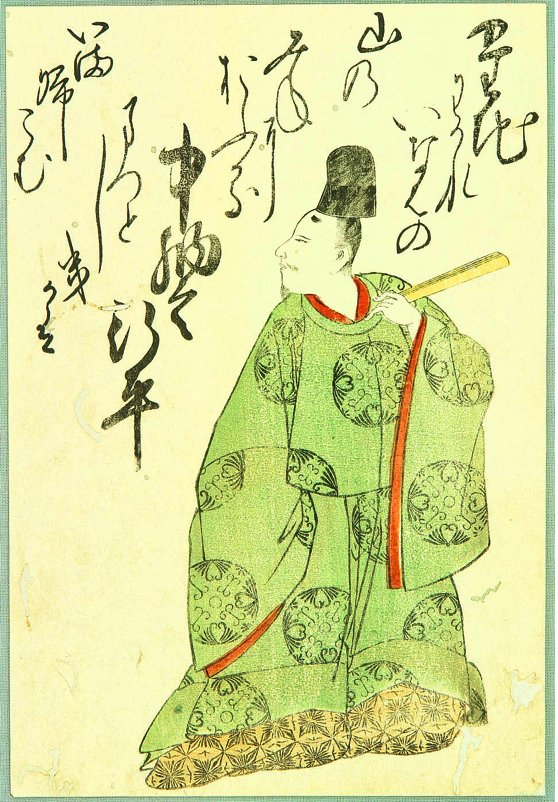 たち
わかれ
いなはの
山乃
みねに
おふる
中納言
行平
まつとし
きかは
いま
帰り
こむ